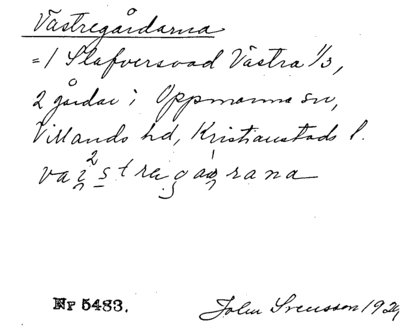 Västregårdarna
= 1 Slafversvad Västra 1/3,
2 gårdar i Oppmanna sn,
Villands hd, Kristianstads l.
Nr 5483. John Svensson 192